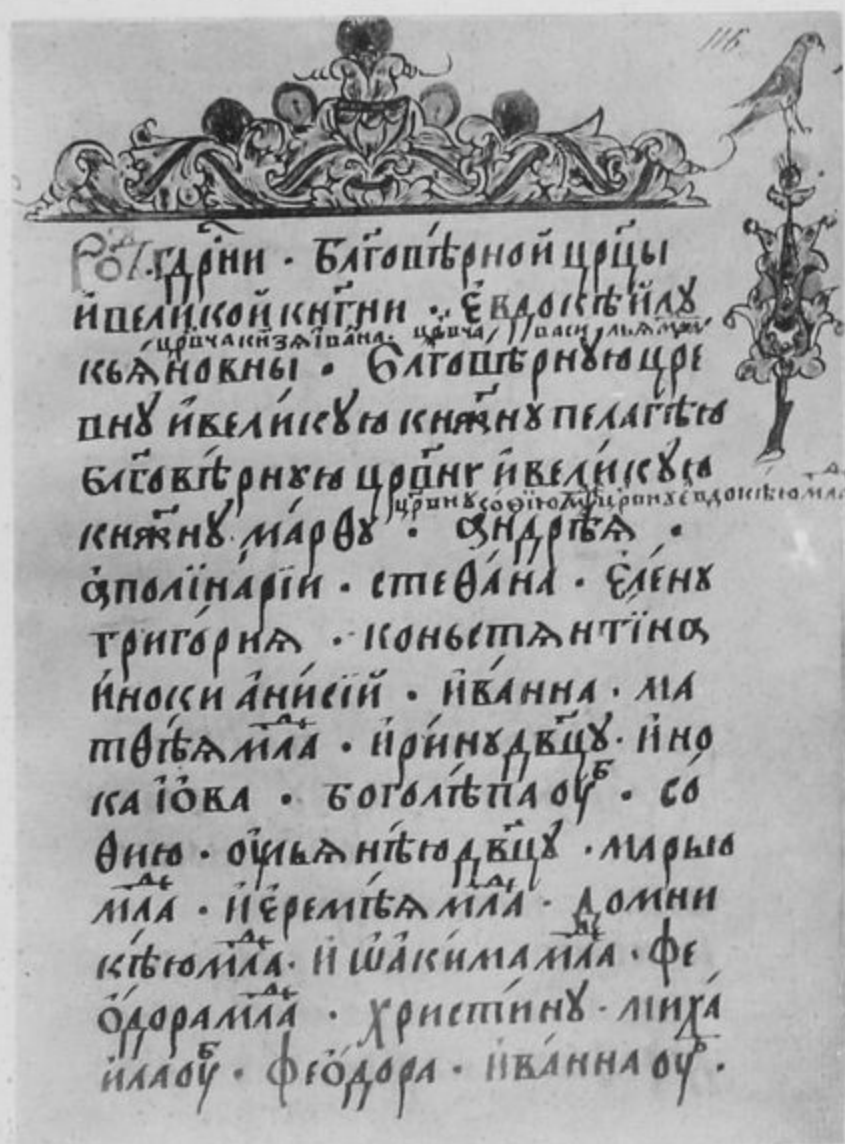 116
Род гдрни · Блговѣрной црцы
и великой кнгни · Евдокѣи Лу
црвча кнзя Ивана · црвча Василья млд
кьяновны · Блговѣрную цре
вну и великую княжну Пелагѣю
блговѣрную црвну и великую
црвну Софїю млд црвну Евдокѣю мла
княжну Марфу · Андрѣя ·
Аполїнарїи · стефана · Елену
григория · коньстянтїна
иноки анисїй · иванна · ма
тѳѣя мла · ирину двцу · ино
ка їова · боголѣпа оуб · со
ѳию · оульянѣю двцу · марью
мла · иеремѣя мла · домни
кѣю мла · иѡакима мла · фе
одора мла · христину · миха
ила оуб · феодора · иванна оуб ·